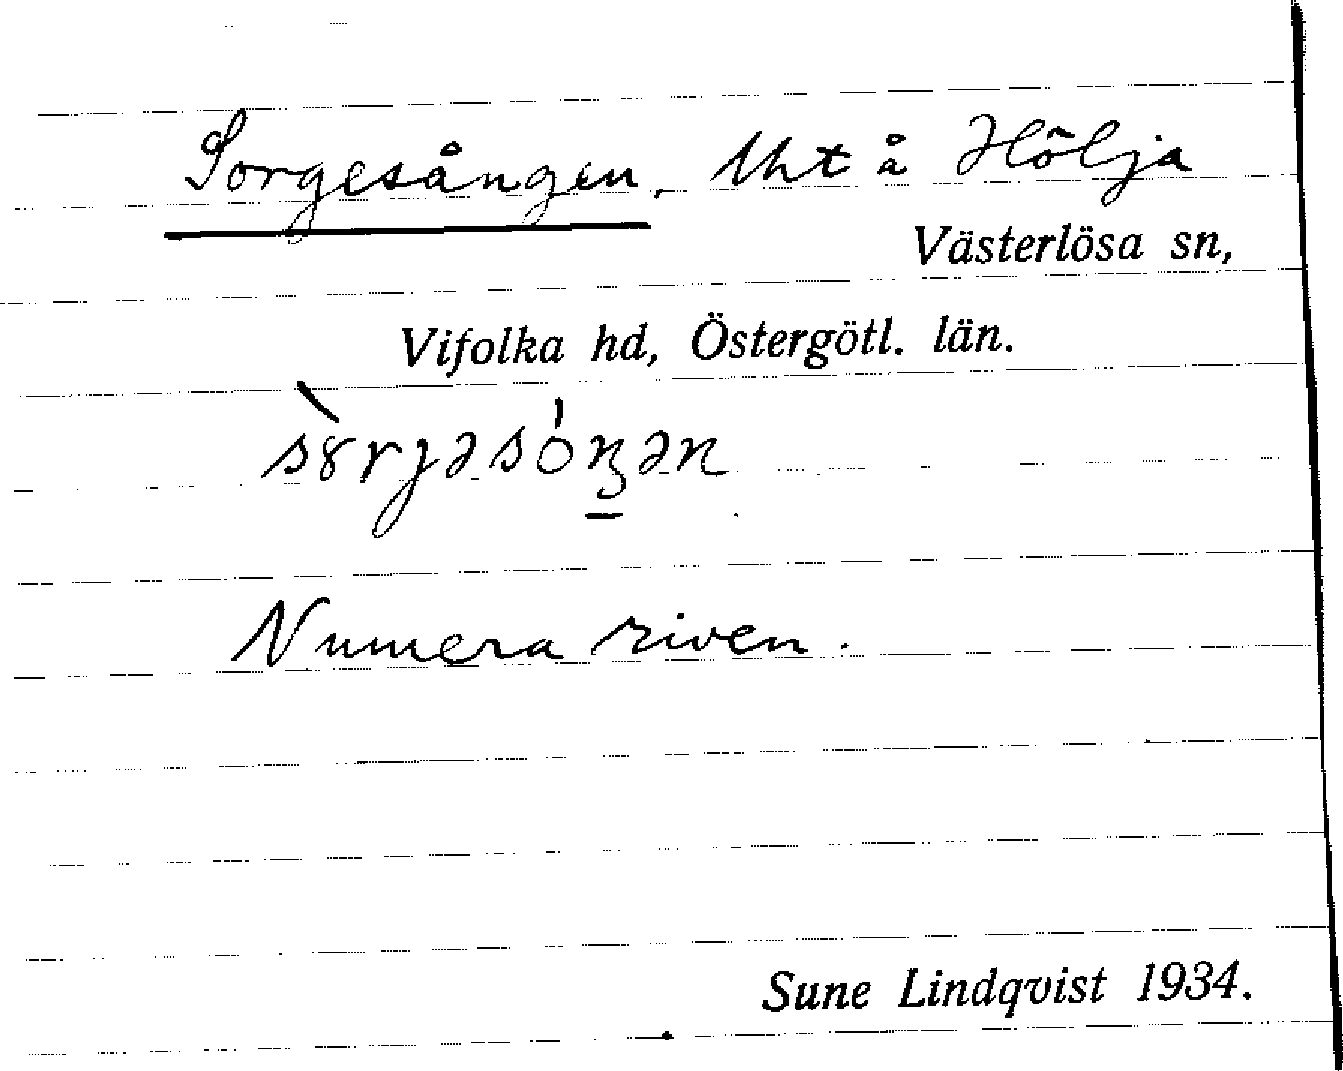 Sorgesången. Uht å Hölja
Västerlösa sn,
Vifolka hd, Östergötl. län.
sɤ̀rɟəsóŋən
Numera riven.
Sune Lindqvist 1934.